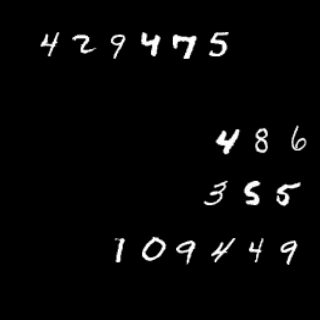 429475
486
355
109449